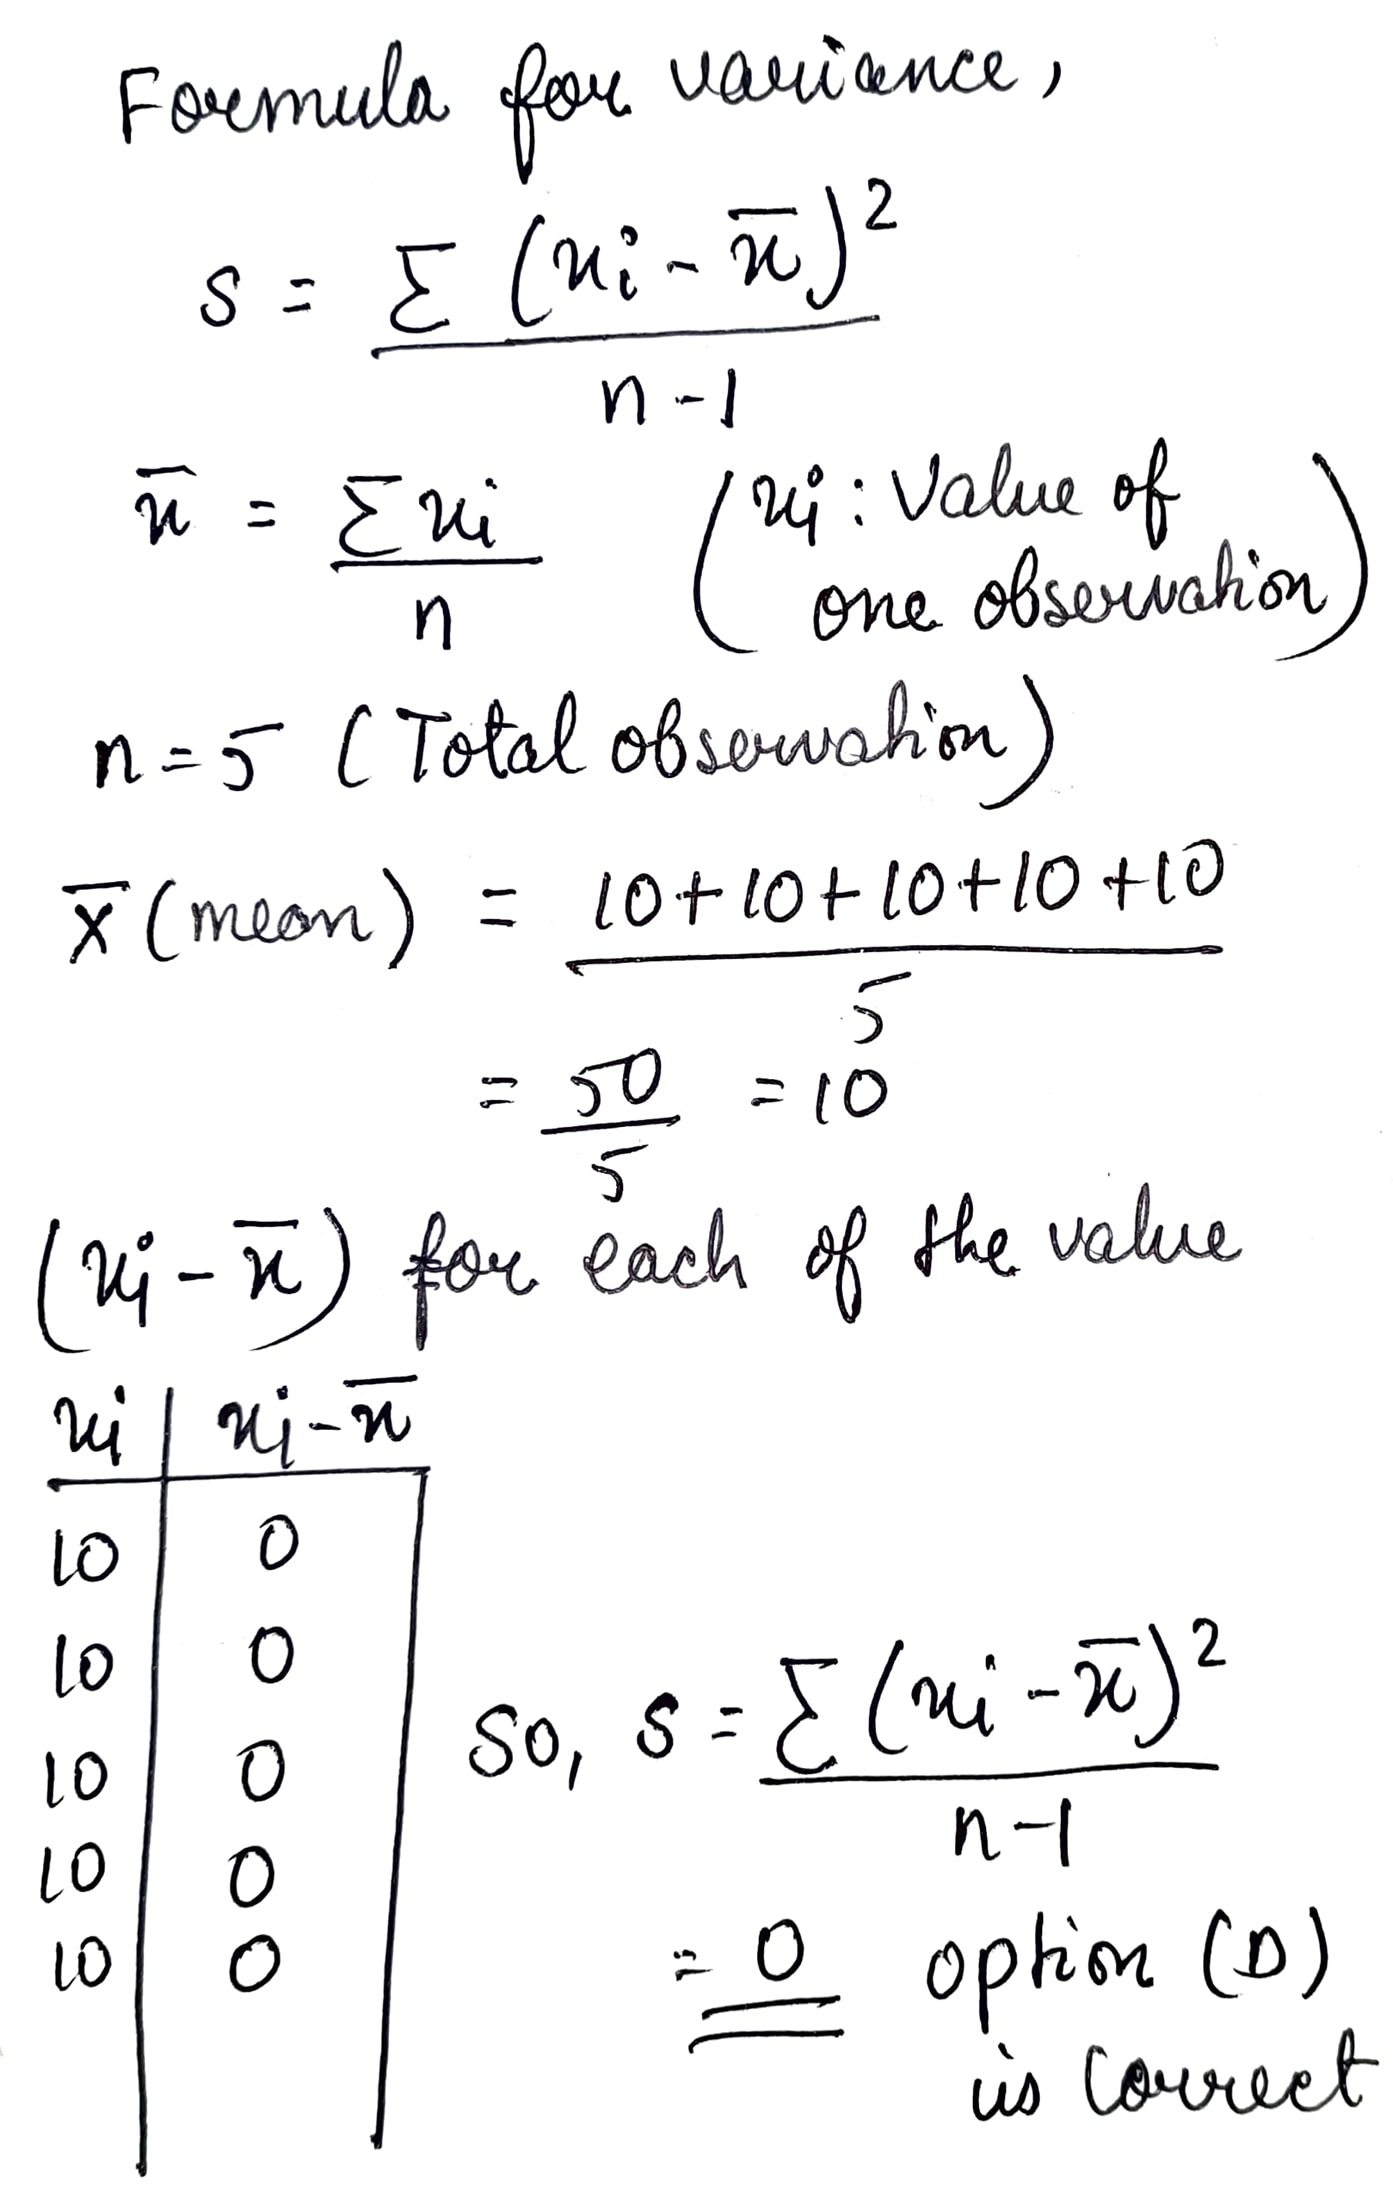 Formula for variance,
s = Σ (xi - x̄)²
n - 1
x̄ = Σ xi
n
(xi : Value of
one observation)
n = 5 (Total observation)
x̄ (mean) = 10 + 10 + 10 + 10 + 10
5
= 50 = 10
5
(xi - x̄) for each of the value
xi | xi - x̄
10 0
10 0
10 0
10 0
10 0
So, s = Σ (xi - x̄)²
n - 1
= 0 option (D)
is correct